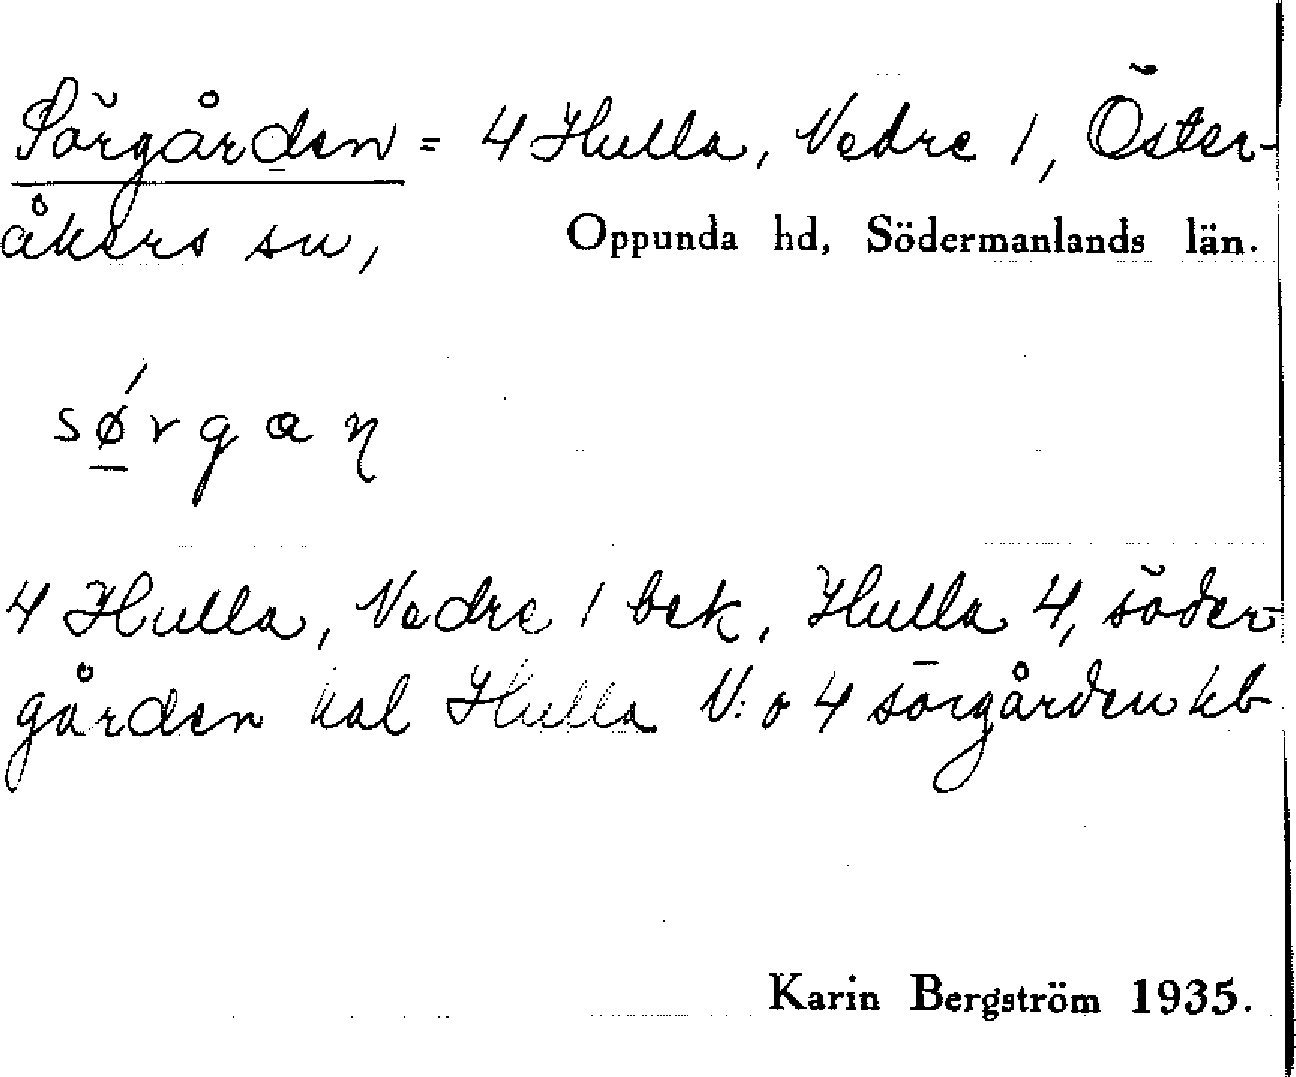 Sörgården = 4 Hulla, Nedre 1, Öster-
åkers sn, Oppunda hd, Södermanlands län.
sǿ̱rgaɳ
4 Hulla, Nedre 1 bek, Hulla 4, söder-
gården hal Hulla N:o 4 sörgården kb
Karin Bergström 1935.